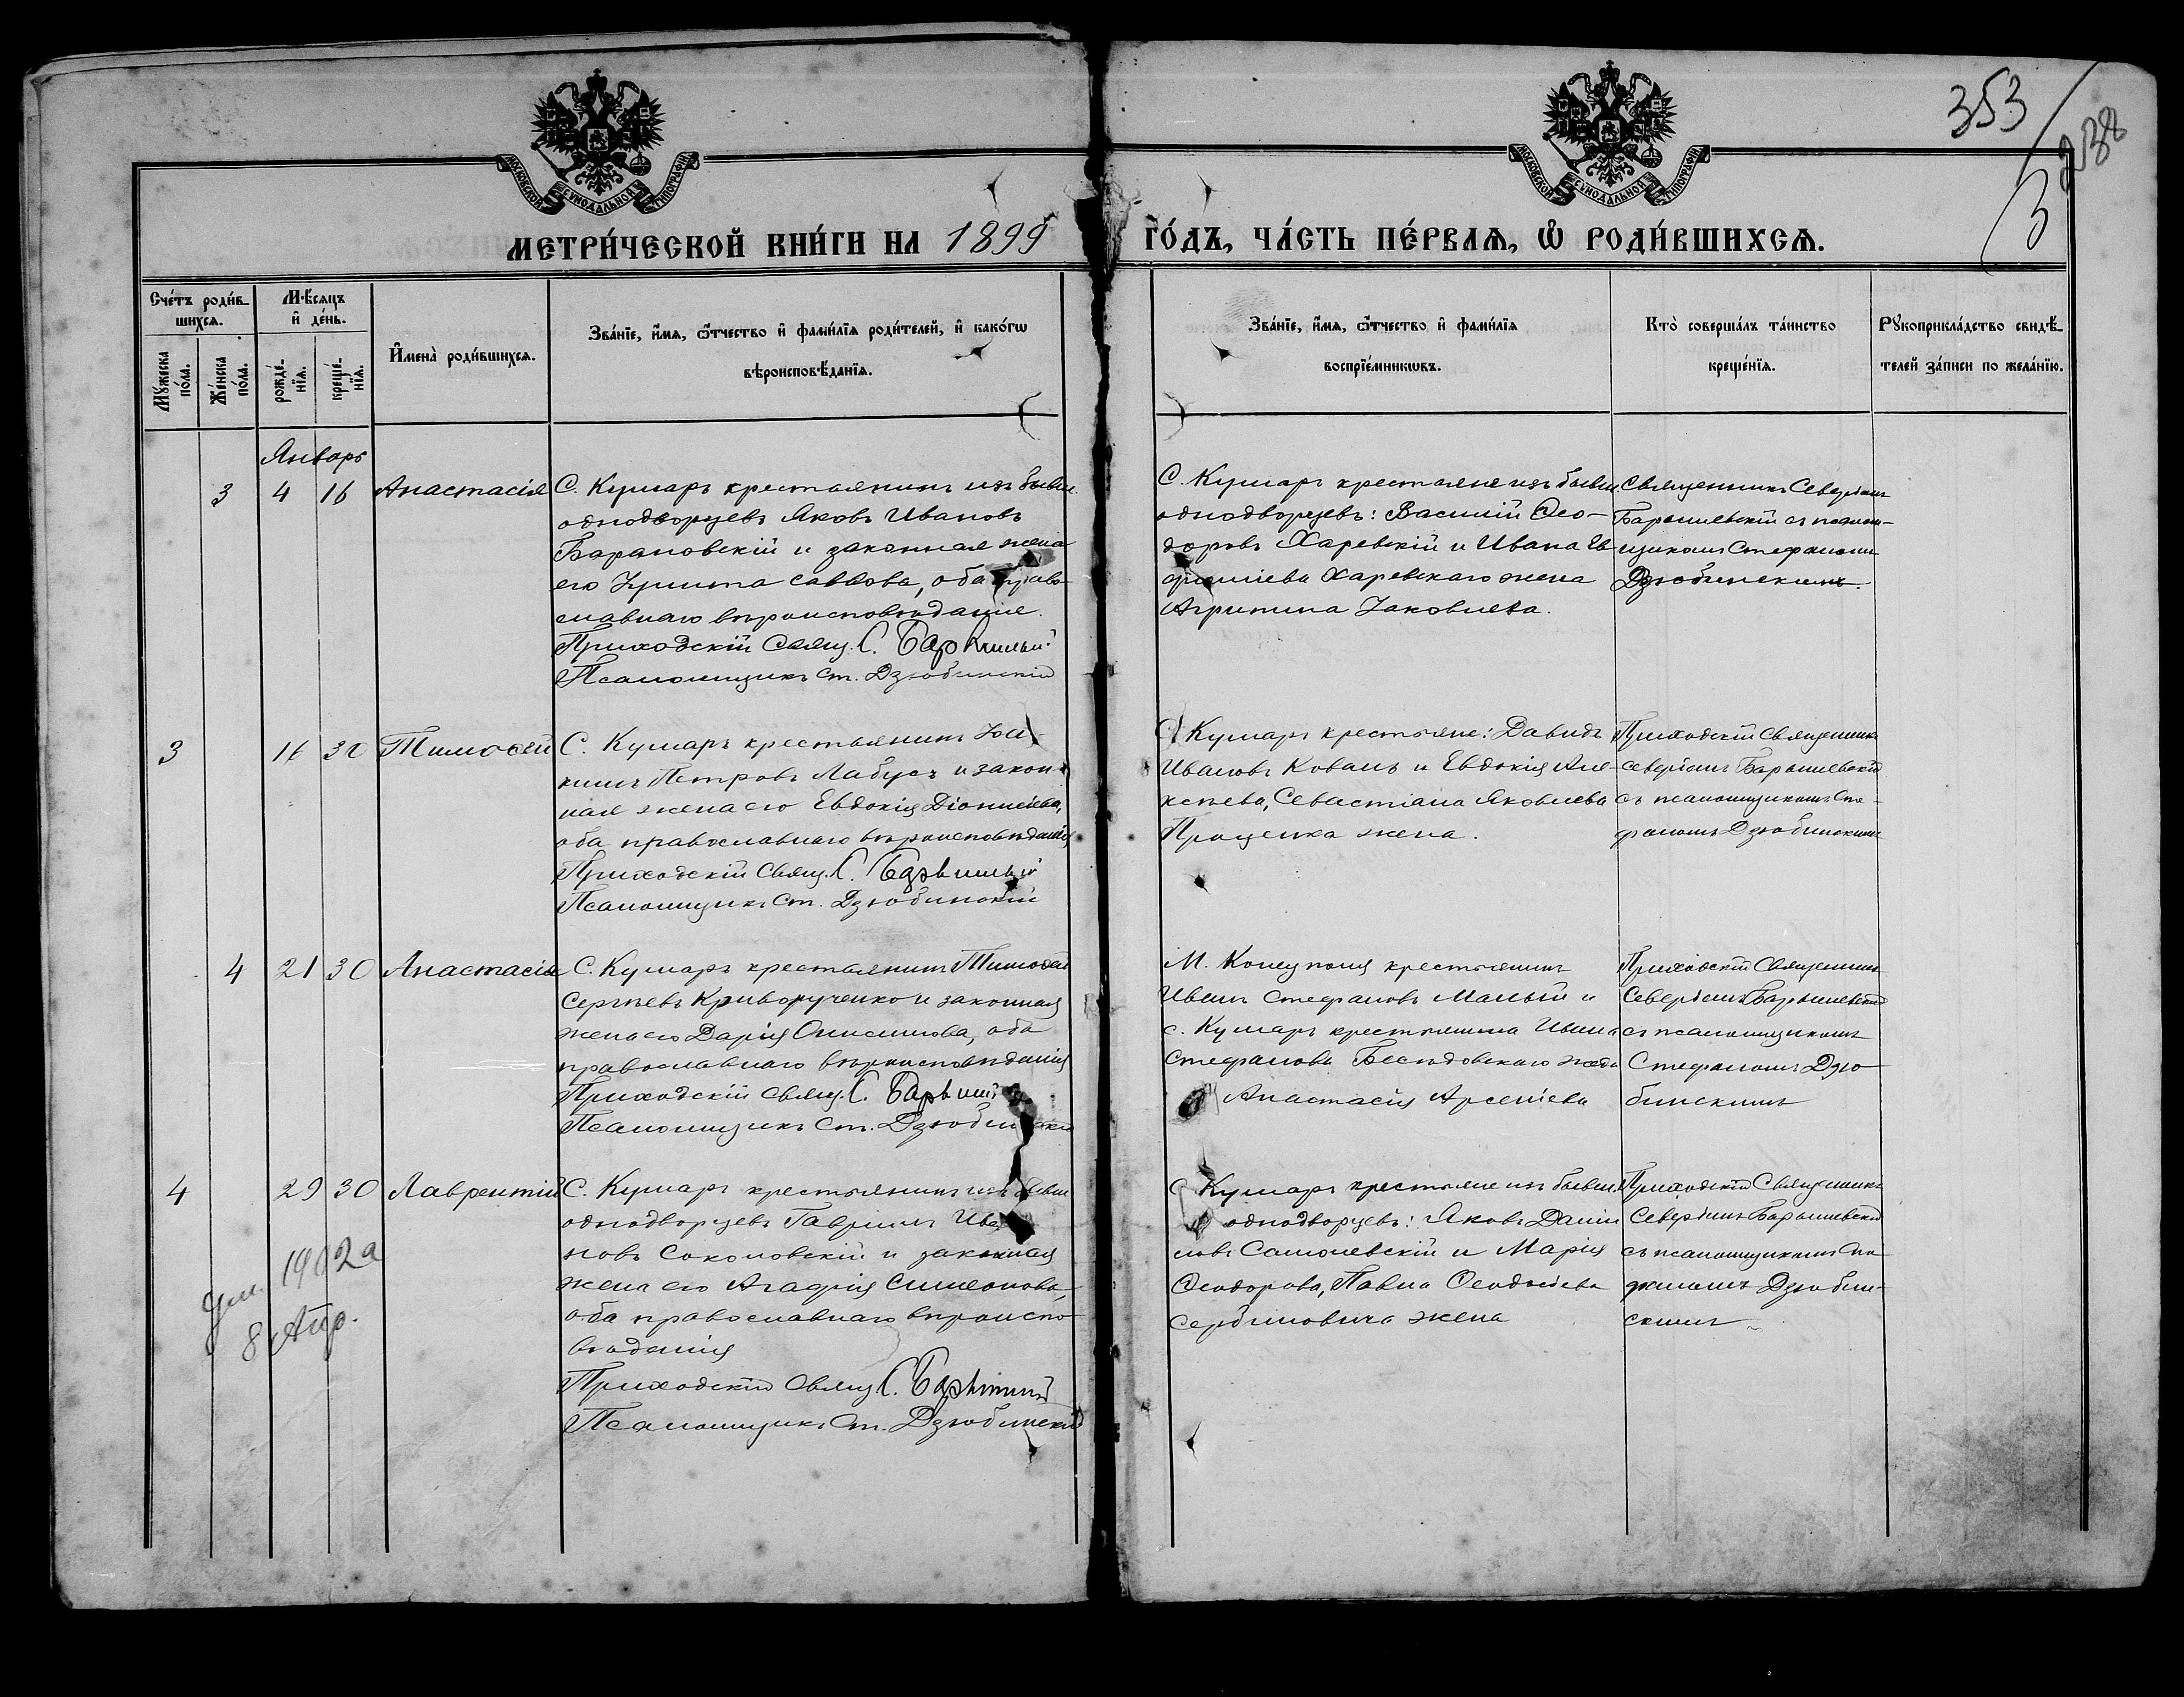 353
238
3
МОСКОВСКОЙ СѴНОДАЛЬНОЙ ТИПОГРАФІИ
МОСКОВСКОЙ СѴНОДАЛЬНОЙ ТИПОГРАФІИ
МЕТРИ́ЧЕСКОЙ КНИ́ГИ НА 1899 ГО́ДЪ, ЧА́СТЬ ПЕ́РВАѦ, Ѽ РОДИ́ВШИХСѦ.
Сче́тъ роди́в-
шихсѧ.
Мꙋ́жеска по́ла.
Же́нска по́ла.
Мѣ́сѧцъ
и҆ де́нь.
рожде́-
нїѧ.
креще́-
нїѧ.
И҆мена̀ роди́вшихсѧ.
Зва́нїе, и҆́мѧ, ѻ҆́тчество и҆ фами́лїѧ роди́телей, и҆ како́гѡ
вѣроисповѣ́данїѧ.
Зва́нїе, и҆́мѧ, ѻ҆́тчество и҆ фами́лїѧ
воспрїе́мникѡвъ.
Кто̀ соверша́лъ та́инство
креще́нїѧ.
Рꙋкоприкла́дство свидѣ́-
телей за́писи по жела́нїю.
Январь
3 4 16 Анастасія
С. Кумаръ крестьянинъ изъ бывш.
однодворцевъ Яковъ Ивановъ
Барановскій и законная жена
его Саввова, оба право-
славнаго вѣроисповѣданія.
Приходскій Свящ. С.
Псаломщикъ Ст. Дзюбинскій
С. Кумаръ крестьяне изъ бывш.
однодворцевъ: Василій Ѳео-
доровъ Харевскій и Ивана Ев
фиміева Харевскаго жена
Агрипина Іаковлева.
Священникъ Северіанъ
Барышевскій съ псалом-
щикомъ Стефаномъ
Дзюбинскимъ.
3 16 30 Тимоѳей
С. Кумаръ крестьянинъ Іоа
кимъ Петровъ Лабусъ и закон-
ная жена его Евдокія Діонисіева,
оба православнаго вѣроисповѣданія
Приходскій Свящ. С.
Псаломщикъ Ст. Дзюбинскій
С. Кумаръ крестьяне: Давидъ
Ивановъ Коваль и Евдокія Але-
ксѣева, Севастіана Яковлева
Проценка жена.
Приходскій Священникъ
Северіанъ Барышевскій
съ псаломщикомъ Сте-
фаномъ Дзюбинскимъ
4 21 30 Анастасія
С. Кумаръ крестьянинъ Тимоѳей
Сергѣевъ Криворученко и законная
жена его Дарія Онисимова, оба
православнаго вѣроисповѣданія
Приходскій Свящ. С.
Псаломщикъ Ст. Дзюбинскій
М. крестьянинъ
Иванъ Стефановъ Малый и
с. Кумаръ крестьянина Ивана
Стефанова Бесѣдовскаго жена
Анастасія Арсеніева
Приходскій Священникъ
Северіанъ Барышевскій
съ псаломщикомъ
Стефаномъ Дзю-
бинскимъ
4 29 30 Лаврентій
С. Кумаръ крестьянинъ изъ бывш
однодворцевъ Гавріилъ Ива
новъ Соколовскій и законная
жена его Агафія Симеонова,
оба православнаго вѣроиспо-
вѣданія
Приходскій Свящ. С.
Псаломщикъ Ст. Дзюбинскій
С. Кумаръ крестьяне изъ бывш.
однодворцевъ: Яковъ Даніи
ловъ Самолевскій и Марія
Ѳеодорова, Павла Ѳеодосіева
Сербиновича жена
Приходскій Священникъ
Северіанъ Барышевскій
съ псаломщикомъ Сте
фаномъ Дзюбин-
скимъ
Ум. 1902 г
8 Апр.